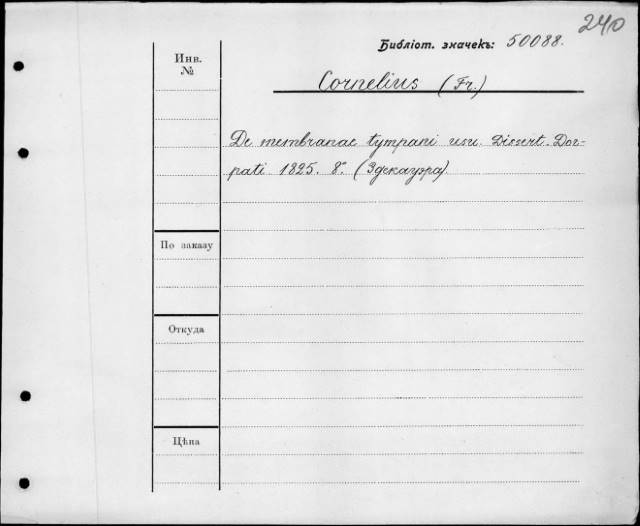 240
Библіот. значекъ: 50088.
Инв.
№
Cornelius (Fr.)
De membranae tympani usu. Dissert. Dor-
pati 1825. 8°. (Здекауэра)
По заказу
Откуда
Цѣна